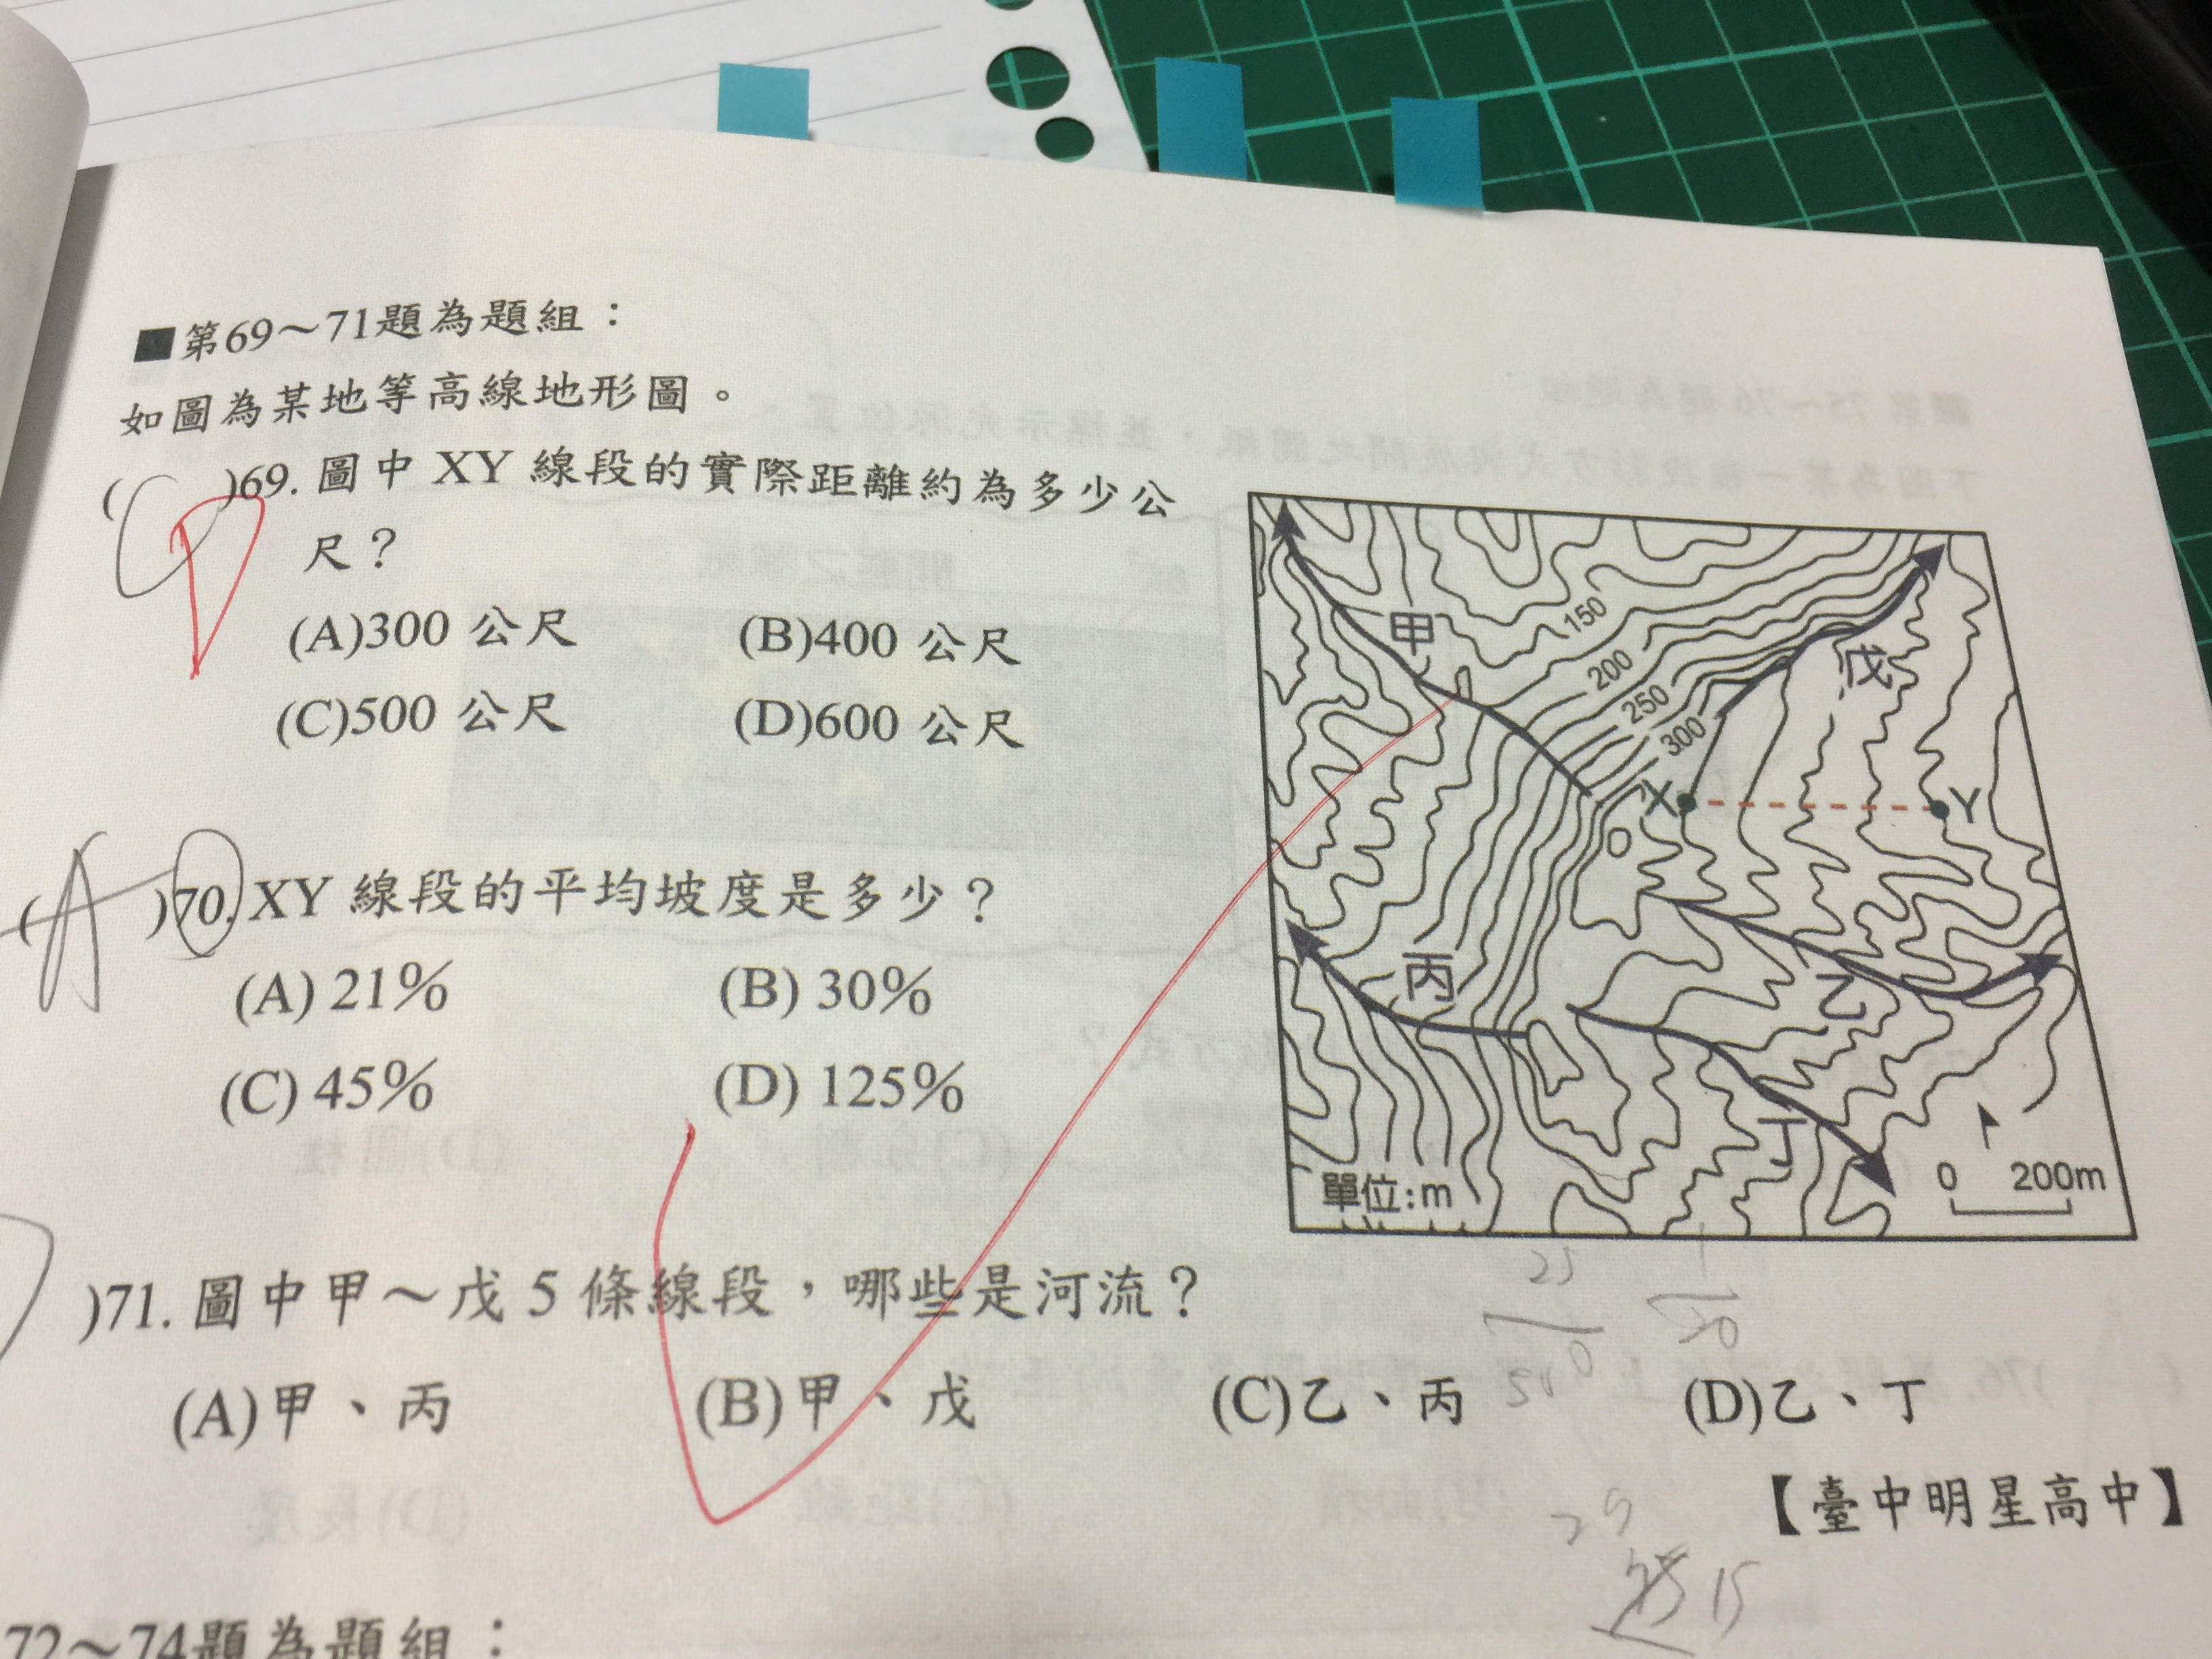 ■第69～71題為題組：
如圖為某地等高線地形圖。
( C )69. 圖中 XY 線段的實際距離約為多少公
尺？
D
(A)300 公尺 (B)400 公尺
(C)500 公尺 (D)600 公尺
( A )70. XY 線段的平均坡度是多少？
(A) 21% (B) 30%
(C) 45% (D) 125%
)71. 圖中甲～戊 5 條線段，哪些是河流？
(A)甲、丙 (B)甲、戊 (C)乙、丙 (D)乙、丁
【臺中明星高中】
72～74題為題組：
甲
150
200
250
300
戊
X
Y
丙
乙
丁
單位:m
0 200m
25
1
50
15